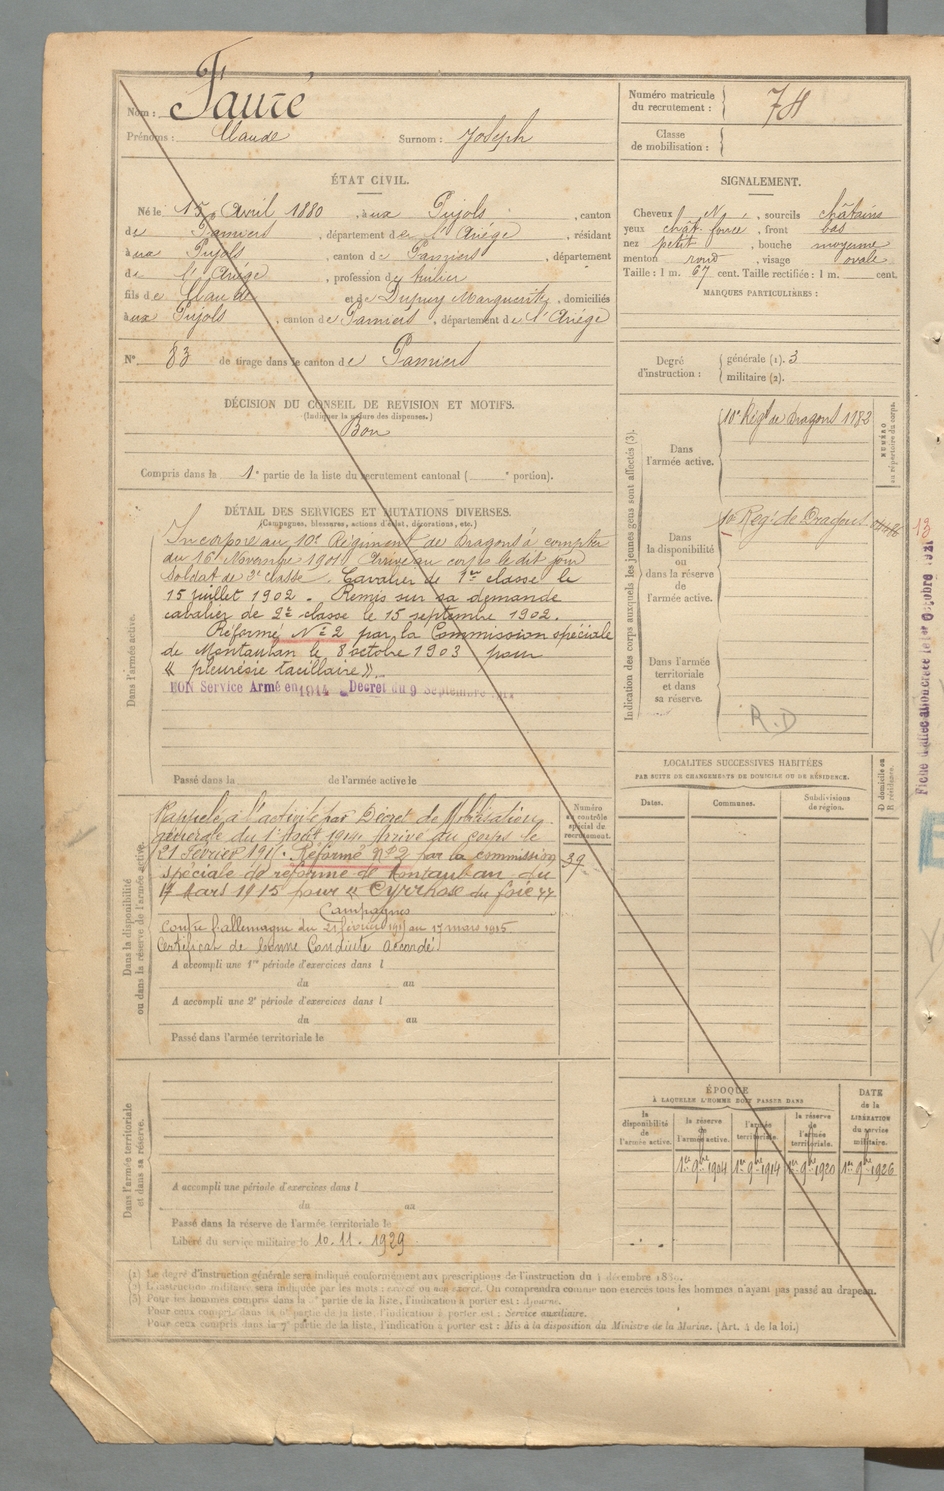 Nom : Fauré
Prénoms : Claude Surnom : Joseph
ÉTAT CIVIL.
Né le 15 Avril 1880 , à ux Pujols , canton
de Pamiers , département de l'Ariège , résidant
à ux Pujols , canton de Pamiers , département
de l'Ariège , profession de
fils de Claude et de Dupuy Marguerite , domiciliés
à ux Pujols , canton de Pamiers , département de l'Ariège
N° 83 de tirage dans le canton de Pamiers
DÉCISION DU CONSEIL DE REVISION ET MOTIFS.
(Indiquer la nature des dispenses.)
Bon
Compris dans la 1e partie de la liste du recrutement cantonal ( e portion).
DÉTAIL DES SERVICES ET MUTATIONS DIVERSES.
(Campagnes, blessures, actions d'éclat, décorations, etc.)
Dans l'armée active.
Incorporé au 10e Régiment de Dragons à compter
du 16 Novembre 1901 Arrivé au corps le dit jour
Soldat de 2e classe. Cavalier de 1re classe le
15 juillet 1902. Remis sur sa demande
cavalier de 2e classe le 15 septembre 1902.
Réformé N° 2 par la Commission spéciale
de Montauban le 8 octobre 1903 pour
« pleurésie »
BON Service Armé en 1914 Décret du 9 Septembre 1914
Passé dans la de l'armée active le
Dans la disponibilité
ou dans la réserve de l'armée active.
Numéro
au contrôle
spécial de
recrutement.
39
Rappelé à l'activité par Décret de Mobilisation
générale du 1er Août 1914. Arrivé au corps le
21 Février 1915. Réformé N° 2 par la commission
spéciale de réforme de Montauban du
17 Mars 1915 pour « Cyrrhose du foie »
Campagnes
Contre l'allemagne du 21 février 1915 au 17 mars 1915
Certificat de bonne Conduite accordé
A accompli une 1re période d'exercices dans l
du au
A accompli une 2e période d'exercices dans l
du au
Passé dans l'armée territoriale le
Dans l'armée territoriale
et dans sa réserve.
A accompli une période d'exercices dans l
du au
Passé dans la réserve de l'armée territoriale le
Libéré du service militaire le 10.11.1929
Numéro matricule
du recrutement : 78
Classe
de mobilisation :
SIGNALEMENT.
Cheveux N , sourcils châtains
yeux chât. foncé , front bas
nez petit , bouche moyenne
menton rond , visage ovale
Taille : 1 m. 67 cent. Taille rectifiée : 1 m. cent.
MARQUES PARTICULIÈRES :
Degré
d'instruction :
générale (1). 3
militaire (2).
Indication des corps auxquels les jeunes gens sont affectés (3).
NUMÉRO
au répertoire du corps.
Dans
l'armée active.
10e Régt de Dragons 1182
Dans
la disponibilité
ou
dans la réserve
de
l'armée active.
10 Régt de Dragons
Dans l'armée
territoriale
et dans
sa réserve.
R.D
LOCALITÉS SUCCESSIVES HABITÉES
PAR SUITE DE CHANGEMENTS DE DOMICILE OU DE RÉSIDENCE.
Dates.
Communes.
Subdivisions
de région.
D domicile ou
R résidence.
ÉPOQUE
À LAQUELLE L'HOMME DOIT PASSER DANS
la
disponibilité
de
l'armée active.
la réserve
de
l'armée active.
l'armée
territoriale.
la réserve
de
l'armée
territoriale.
DATE
de la
LIBÉRATION
du service
militaire.
1er 9bre 1904 1er 9bre 1914 1er 9bre 1920 1er 9bre 1926
(1) Le degré d'instruction générale sera indiqué conformément aux prescriptions de l'instruction du 4 décembre 1889.
(2) L'instruction militaire sera indiquée par les mots : exercé ou non exercé. On comprendra comme non exercés tous les hommes n'ayant pas passé au drapeau.
(3) Pour les hommes compris dans la partie de la liste, l'indication à porter est :
Pour ceux compris dans la 6e partie de la liste, l'indication à porter est : Service auxiliaire.
Pour ceux compris dans la 7e partie de la liste, l'indication à porter est : Mis à la disposition du Ministre de la Marine. (Art. 4 de la loi.)